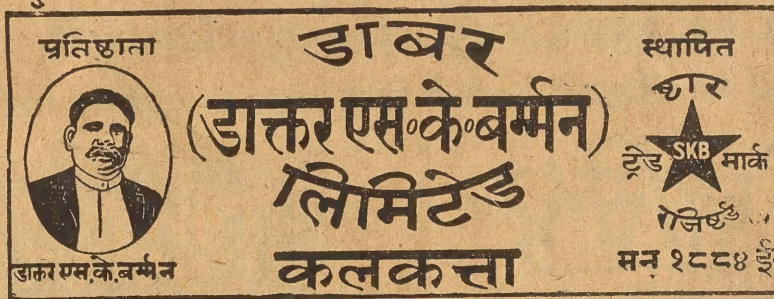 प्रतिष्ठाता
डाक्तर एस. के. बर्म्मन
डाबर
(डाक्तर एस॰ के॰ बर्म्मन)
लिमिटेड
कलकत्ता
स्थापित
ष्टार
ट्रेड SKB मार्क
रेजिष्टर्ड
सन् १८८४ ई॰